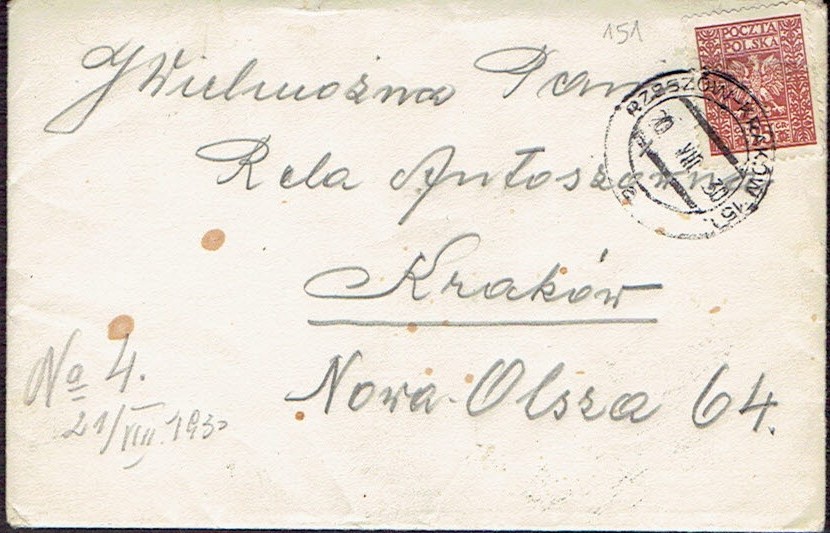 151
POCZTA
POLSKA
RZESZÓW-KRAKÓW 151
20 VIII 30
JWielmożna Pani
Rela Antoszówna
Kraków
Nowa-Olsza 64.
No 4.
21/VIII.1930